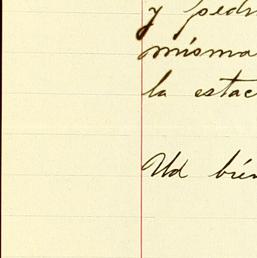 y pedr
misma
la estac
Ud bien